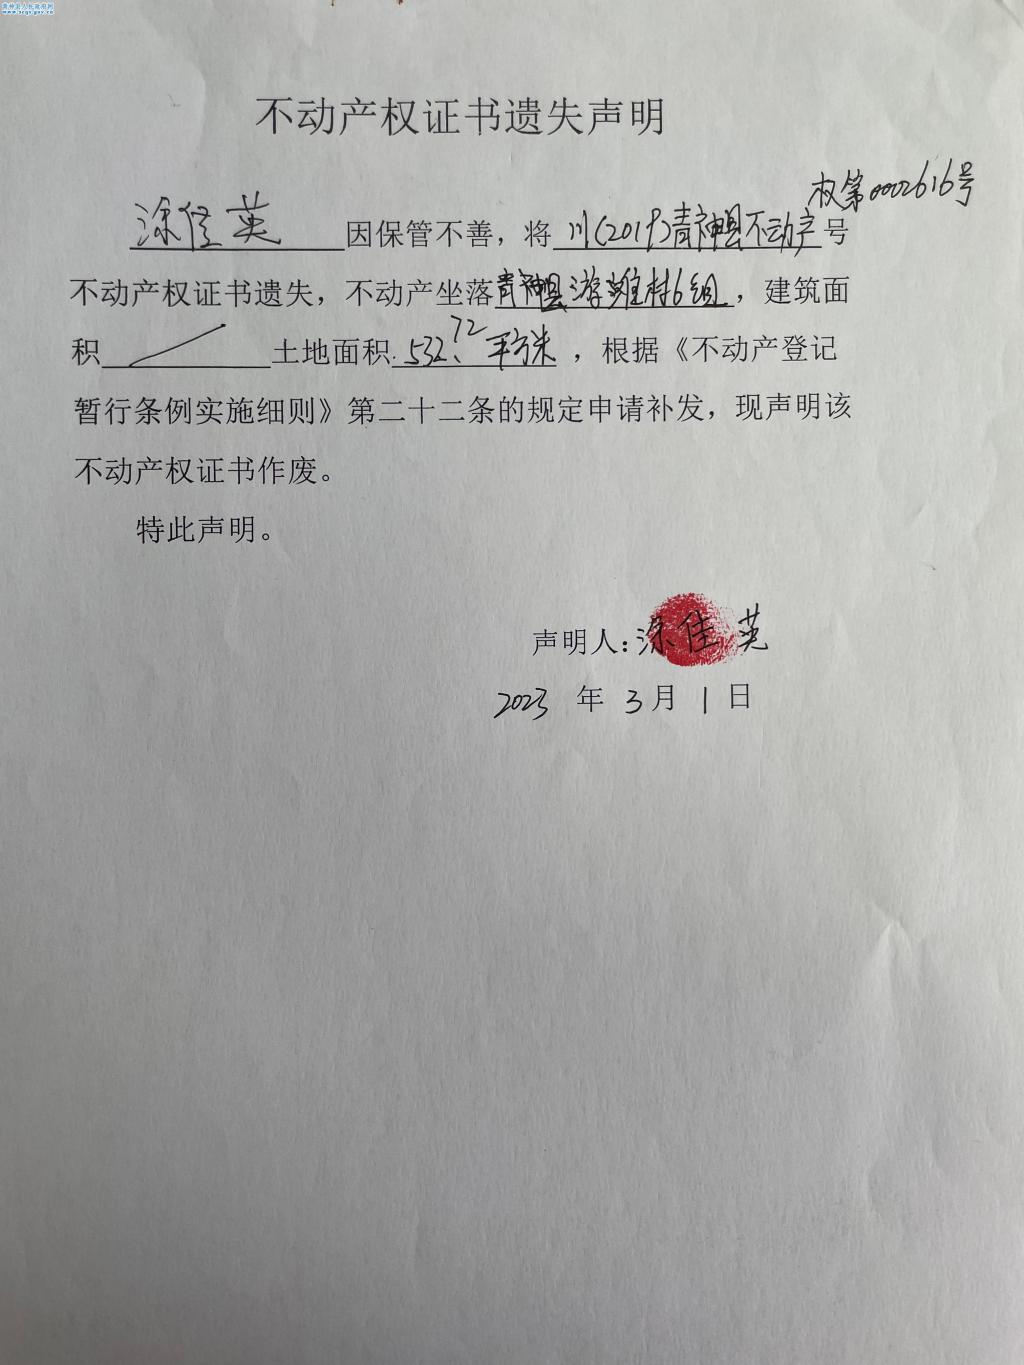 青神县人民政府网
www.scqs.gov.cn
不动产权证书遗失声明
权第0002616号
涂佳英因保管不善，将川(2019)青神县不动产号
不动产权证书遗失，不动产坐落青神县游滩村6组，建筑面
积／土地面积532.72平方米，根据《不动产登记
暂行条例实施细则》第二十二条的规定申请补发，现声明该
不动产权证书作废。
特此声明。
声明人：涂佳英
2023年3月1日